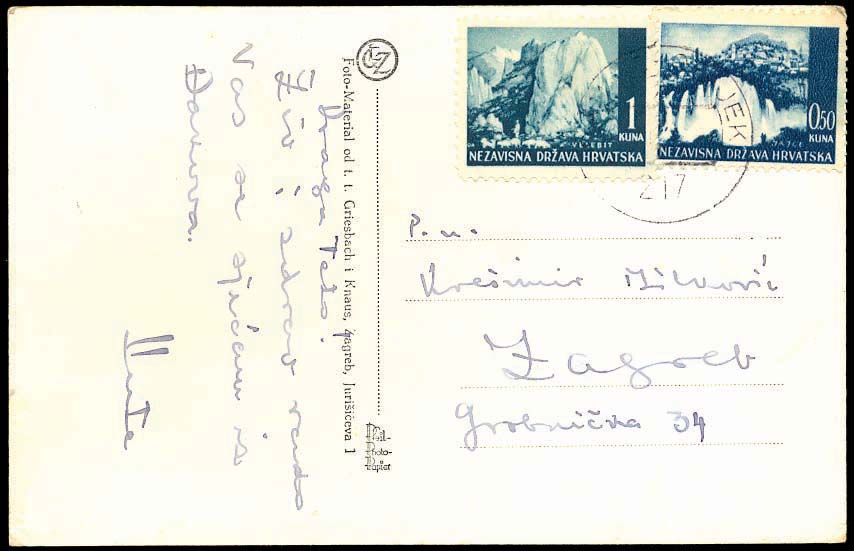 Draga Teto!
Živ i zdrav rado
Vas se sjećam iz
Daruvara.
Foto-Material od t. t. Griesbach i Knaus, Zagreb, Jurišićeva 1
1
KUNA
VELEBIT
NEZAVISNA DRŽAVA HRVATSKA
0.50
KUNA
JAJCE
NEZAVISNA DRŽAVA HRVATSKA
JEK
217
P. n.
Krešimir
Zagreb
Grobnička 34